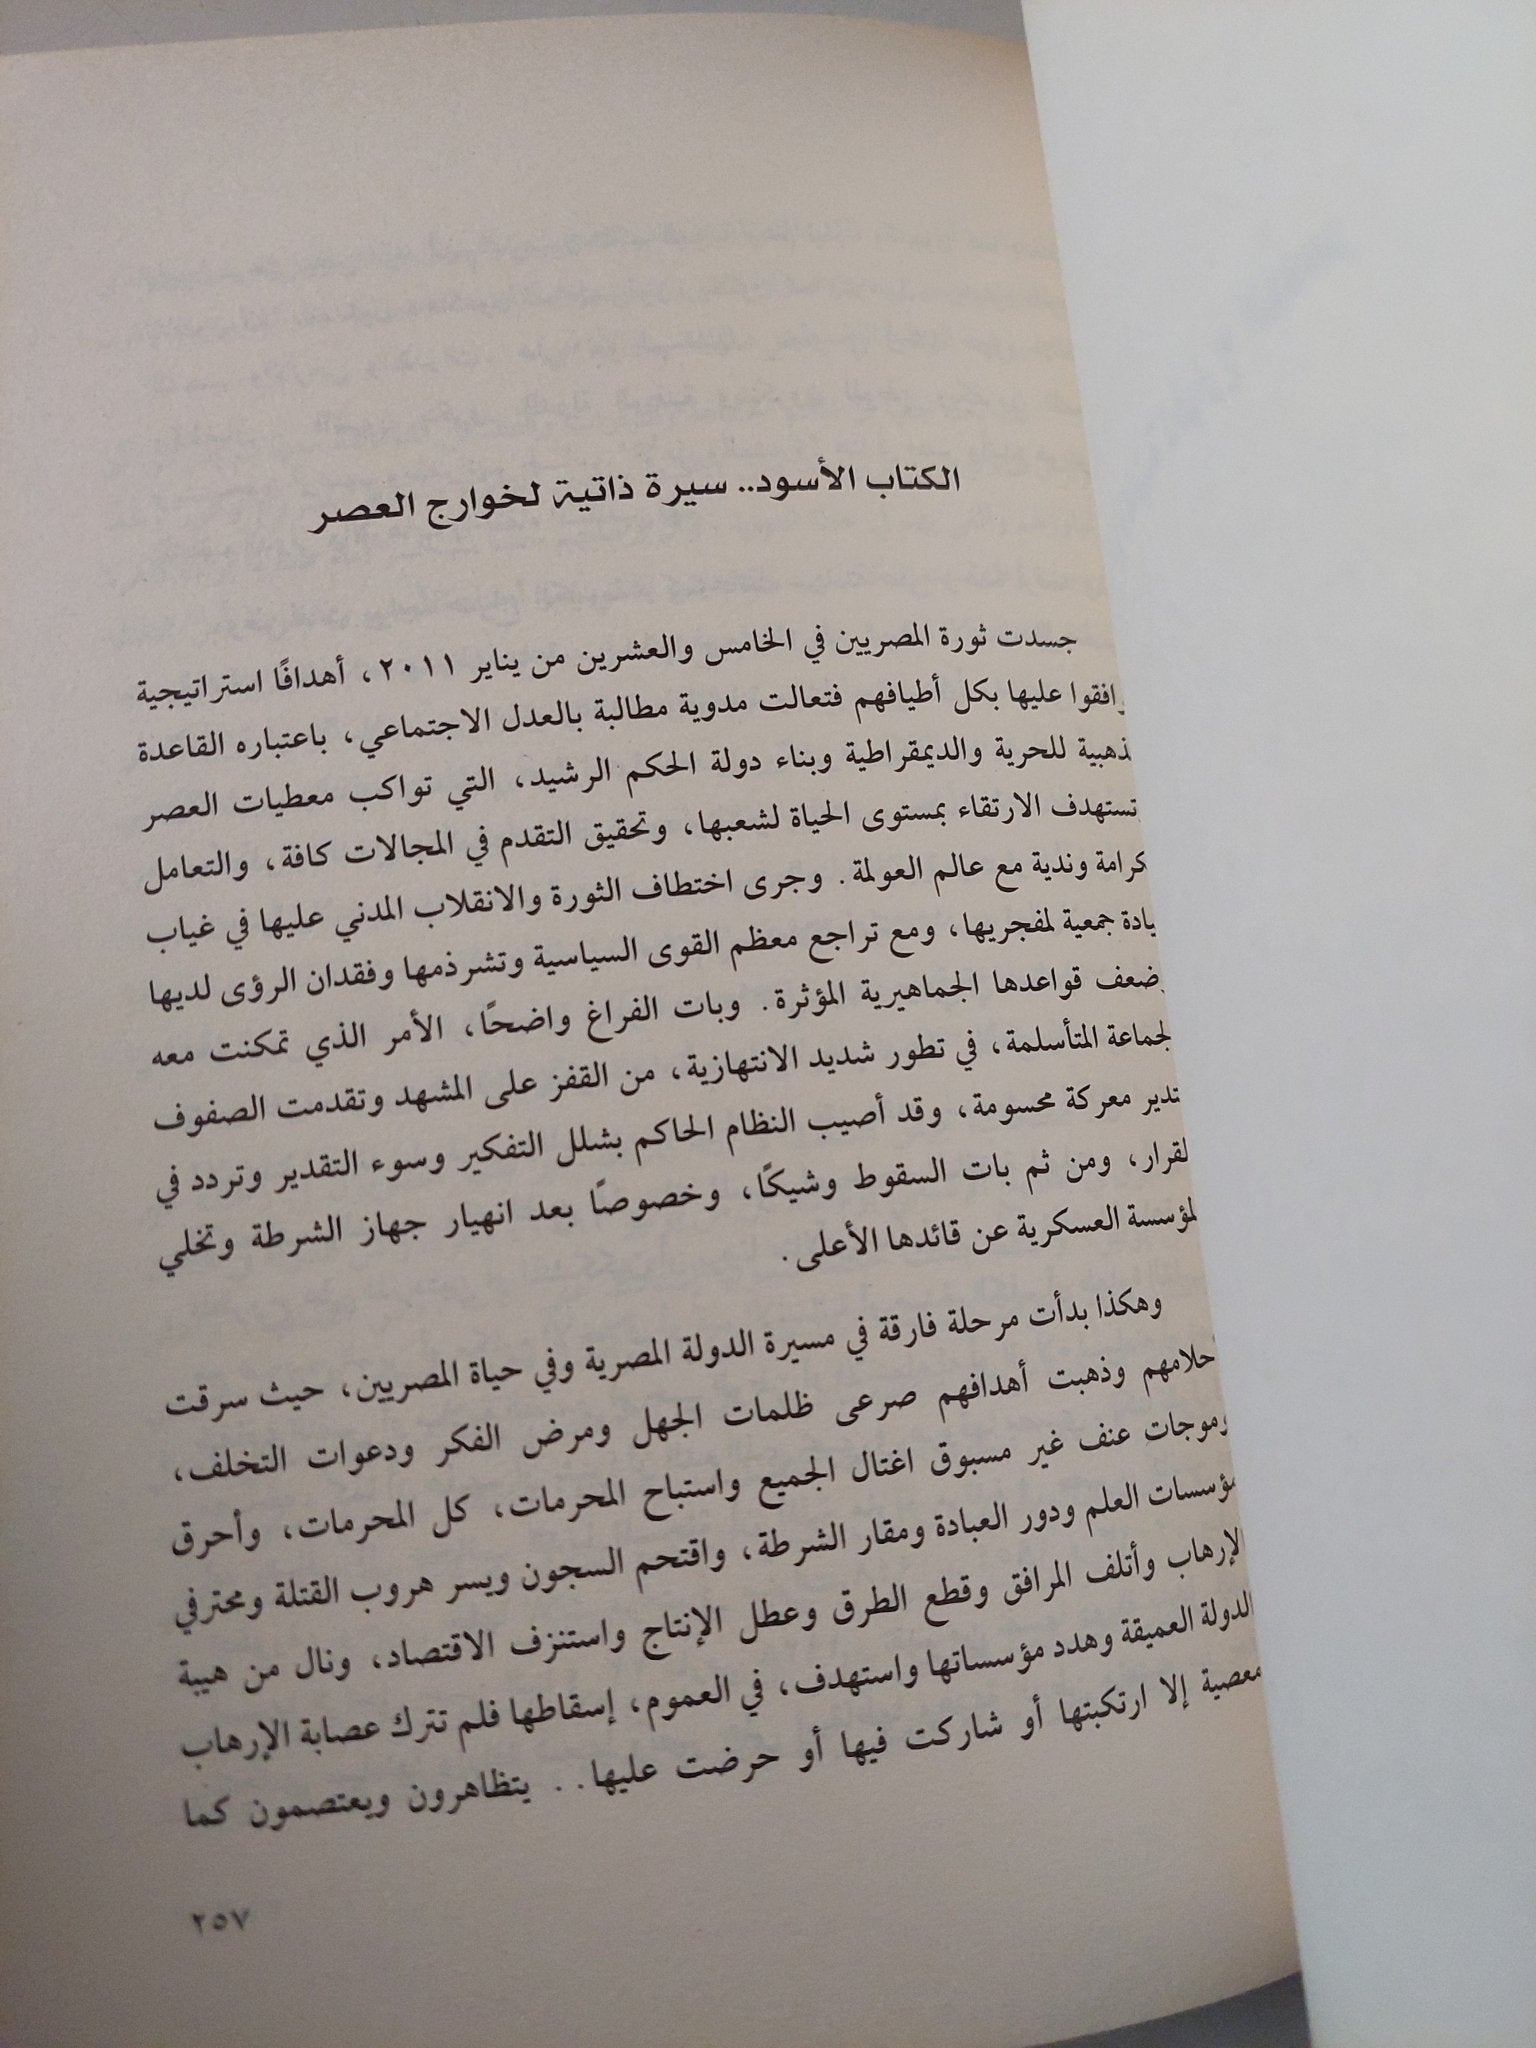 الكتاب الأسود.. سيرة ذاتية لخوارج العصر
جسدت ثورة المصريين في الخامس والعشرين من يناير ٢٠١١، أهدافًا استراتيجية
افقوا عليها بكل أطيافهم فتعالت مدوية مطالبة بالعدل الاجتماعي، باعتباره القاعدة
ذهبية للحرية والديمقراطية وبناء دولة الحكم الرشيد، التي تواكب معطيات العصر
تستهدف الارتقاء بمستوى الحياة لشعبها، وتحقيق التقدم في المجالات كافة، والتعامل
كرامة وندية مع عالم العولمة. وجرى اختطاف الثورة والانقلاب المدني عليها في غياب
يادة جمعية لمفجريها، ومع تراجع معظم القوى السياسية وتشرذمها وفقدان الرؤى لديها
ضعف قواعدها الجماهيرية المؤثرة. وبات الفراغ واضحًا، الأمر الذي تمكنت معه
لجماعة المتأسلمة، في تطور شديد الانتهازية، من القفز على المشهد وتقدمت الصفوف
تدير معركة محسومة، وقد أصيب النظام الحاكم بشلل التفكير وسوء التقدير وتردد في
لقرار، ومن ثم بات السقوط وشيكًا، وخصوصًا بعد انهيار جهاز الشرطة وتخلي
لمؤسسة العسكرية عن قائدها الأعلى.
وهكذا بدأت مرحلة فارقة في مسيرة الدولة المصرية وفي حياة المصريين، حيث سرقت
حلامهم وذهبت أهدافهم صرعى ظلمات الجهل ومرض الفكر ودعوات التخلف،
وموجات عنف غير مسبوق اغتال الجميع واستباح المحرمات، كل المحرمات، وأحرق
مؤسسات العلم ودور العبادة ومقار الشرطة، واقتحم السجون ويسر هروب القتلة ومحترفي
لإرهاب وأتلف المرافق وقطع الطرق وعطل الإنتاج واستنزف الاقتصاد، ونال من هيبة
الدولة العميقة وهدد مؤسساتها واستهدف، في العموم، إسقاطها فلم تترك عصابة الإرهاب
معصية إلا ارتكبتها أو شاركت فيها أو حرضت عليها.. يتظاهرون ويعتصمون كما
٢٥٧